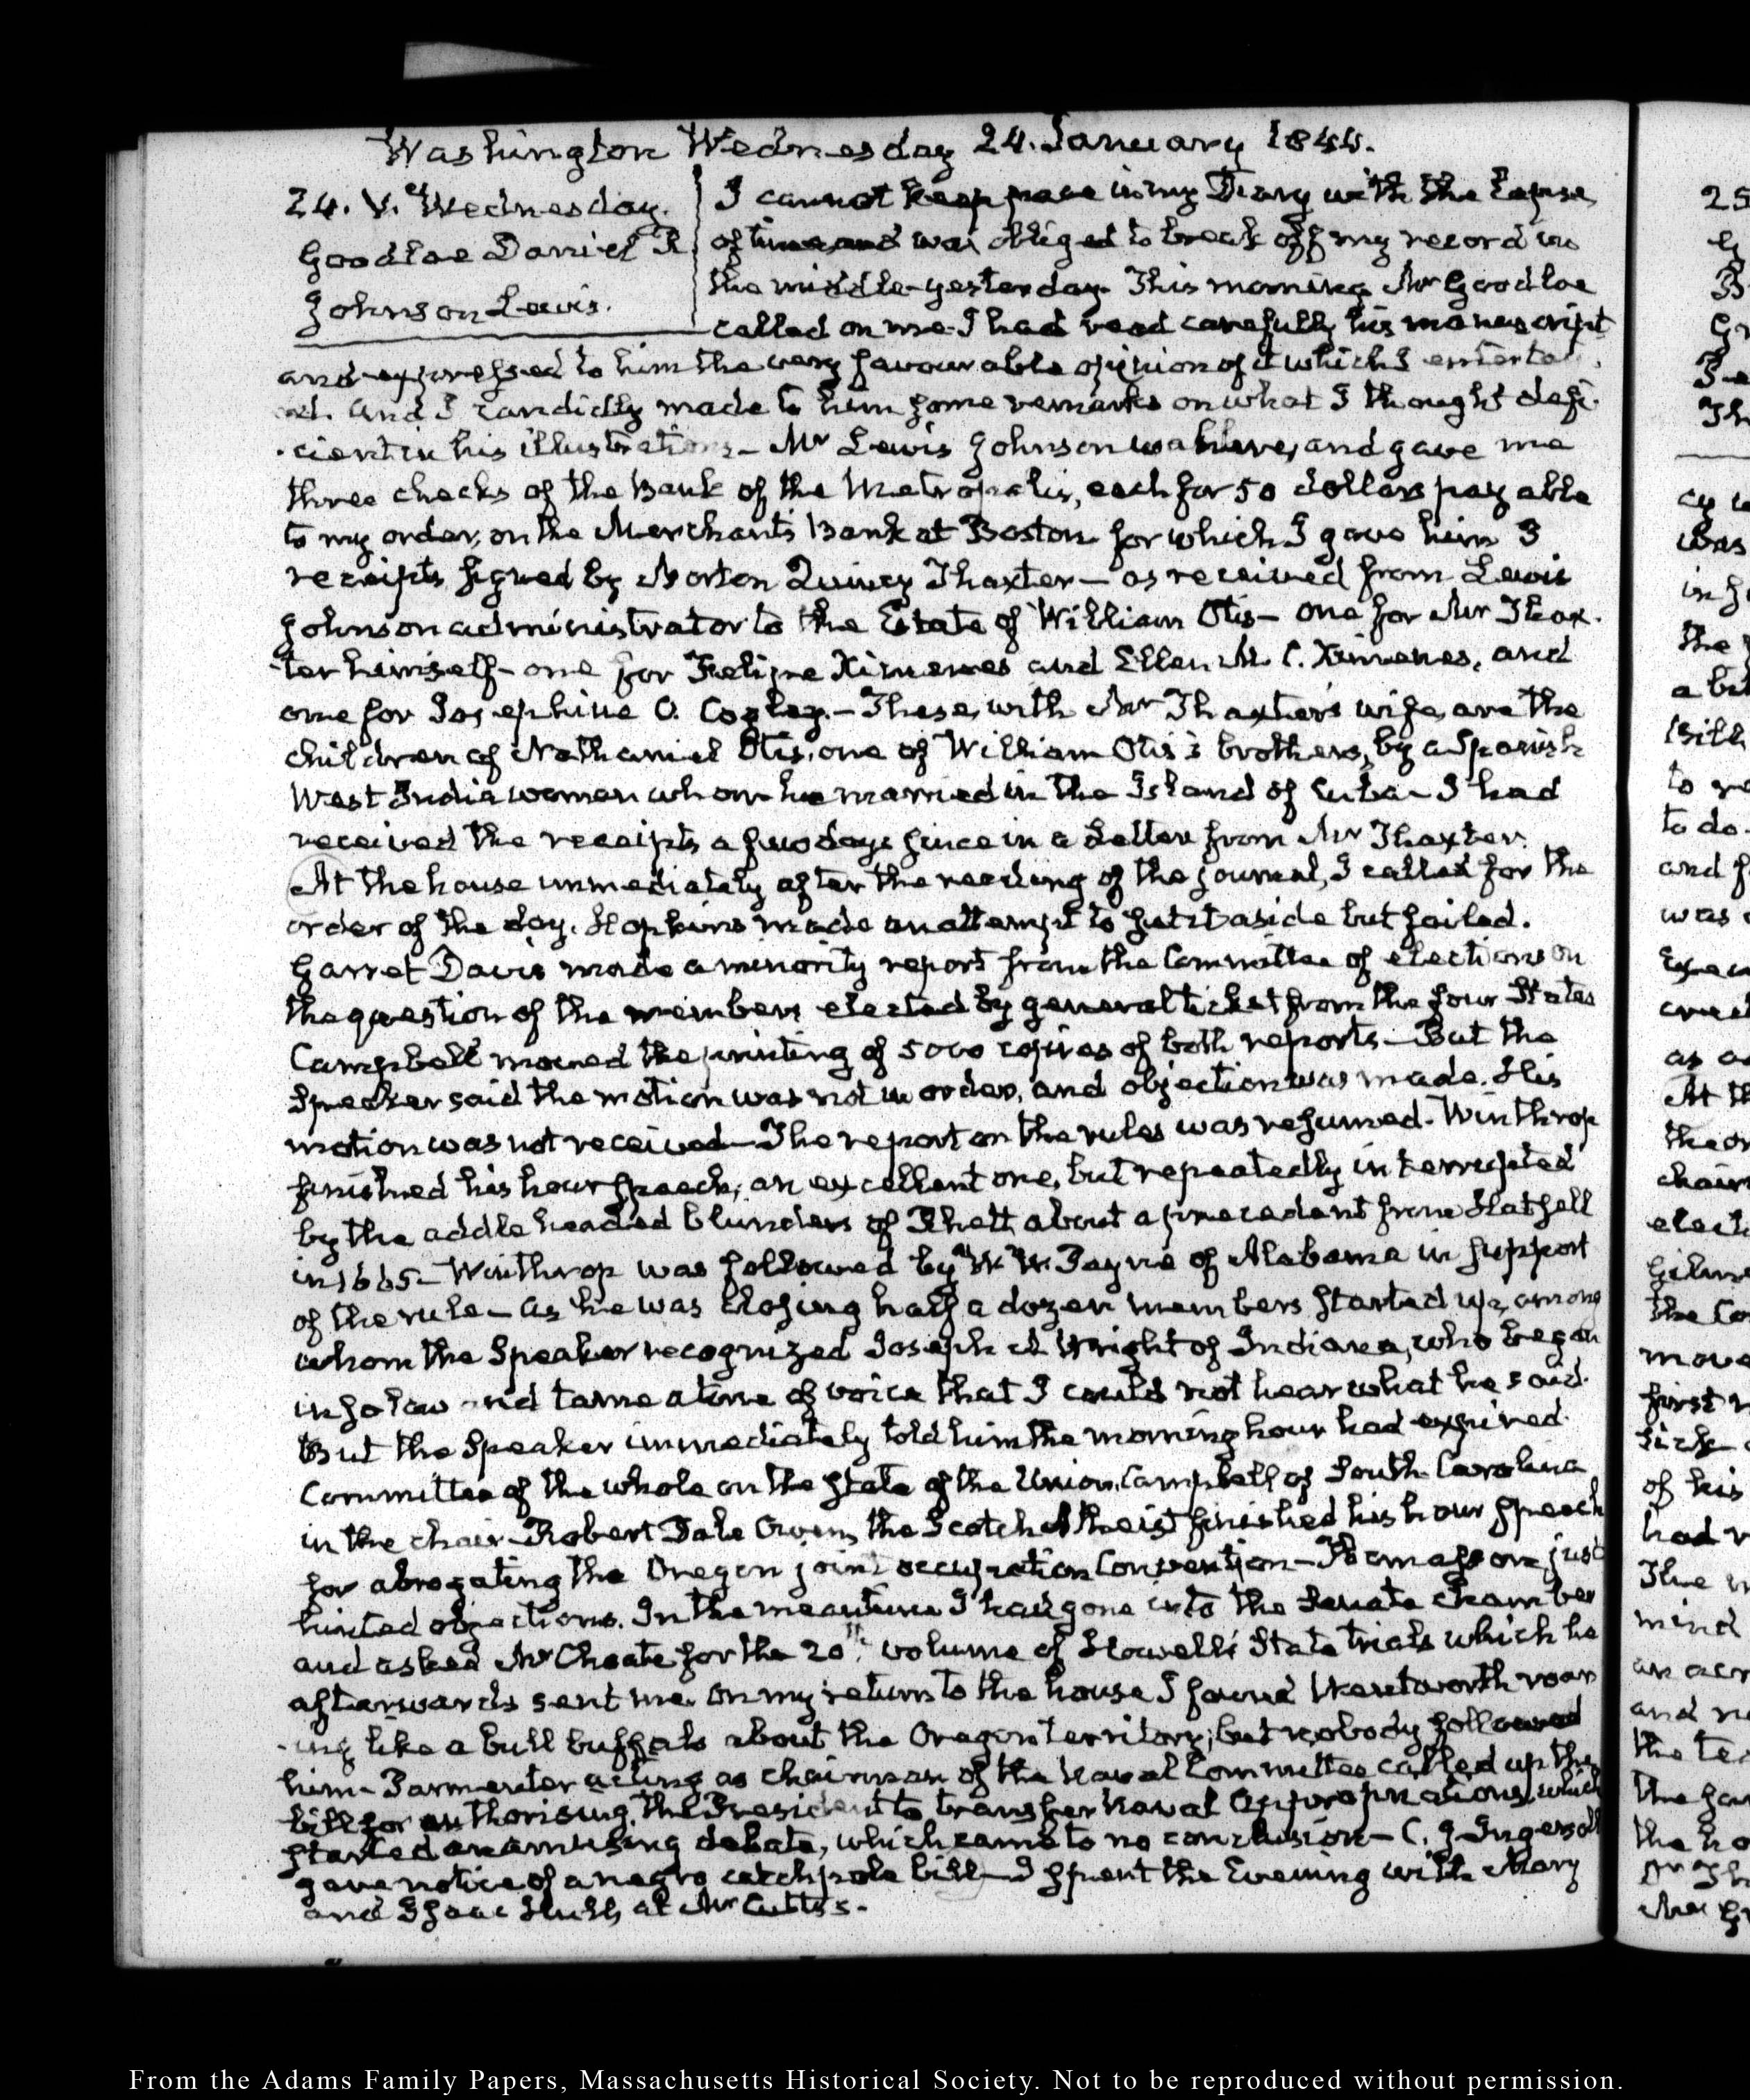 Washington Wednesday 24. January 1844.
24. V. Wednesday.
Goodloe Daniel R
Johnson Lewis.
I cannot keep pace in my Diary with the lapse
of time and was obliged to break off my record in
the middle yesterday. This morning Mr Goodloe
called on me. I had read carefully his manuscript
and expressed to him the very favourable opinion of it which I entertai
ed. And I candidly made to him some remarks on what I thought defi-
-cient in his illustrations— Mr Lewis Johnson was here, and gave me
three checks of the Bank of the Metropolis, each for 50 dollars payable
to my order, on the Merchants Bank at Boston for which I gave him 3
receipts signed by Morton Quincy Thaxter— as received from Lewis
Johnson administrator to the Estate of William Otis— one for Mr Thax-
-ter himself— one for Felipe Ximenes and Ellen M. C. Ximenes, and
one for Josephine O. Cogley.— These, with Mr Thaxter's wife, are the
children of Nathaniel Otis, one of William Otis's brothers, by a Spanish
West India woman whom he married in the Island of Cuba— I had
received the receipts a few days since in a Letter from Mr Thaxter.
At the house immediately after the reading of the journal, I called for the
order of the day. Hopkins made an attempt to put it aside but failed.
Garret Davis made a minority report from the Committee of elections on
the question of the members elected by general ticket from the four States
Campbell moved the printing of 5000 copies of both reports— But the
Speaker said the motion was not in order, and objection was made. His
motion was not received— The report on the rules was resumed. Winthrop
finished his hour speech; an excellent one, but repeatedly interrupted
by the addle headed blunders of Rhett about a precedent from Hatsell
in 1665— Winthrop was followed by W. W. Payne of Alabama in support
of the rule— as he was closing half a dozen members started up, among
whom the Speaker recognized Joseph A Wright of Indiana, who began
in so low and tame a tone of voice that I could not hear what he said.
But the Speaker immediately told him the morning hour had expired.
Committee of the whole on the state of the Union, Campbell of South Carolina
in the chair— Robert Dale Owen, the Scotch Atheist finished his hour speech
for abrogating the Oregon joint occupation Convention— just
hinted objections. In the meantime I had gone into the Senate chamber
and asked Mr Choate for the 20th. volume of Howell's State trials which he
afterwards sent me. On my return to the house I found Wentworth roar
-ing like a bull buffalo about the Oregon territory; but nobody followed
him— Parmenter acting as chairman of the Naval Committee called up the
bill for authorising the President to transfer Naval Appropriations, which
started an amusing debate, which came to no conclusion— C. J Ingersoll
gave notice of a negro catchpole bill— I spent the Evening with Mary
and Isaac Hull, at Mr Cutts's.
25
cy
was
the
to do.
and
was
as
At th
chair
elect
the Co
move
first
of his
had
The
mind
and
the
the
From the Adams Family Papers, Massachusetts Historical Society. Not to be reproduced without permission.